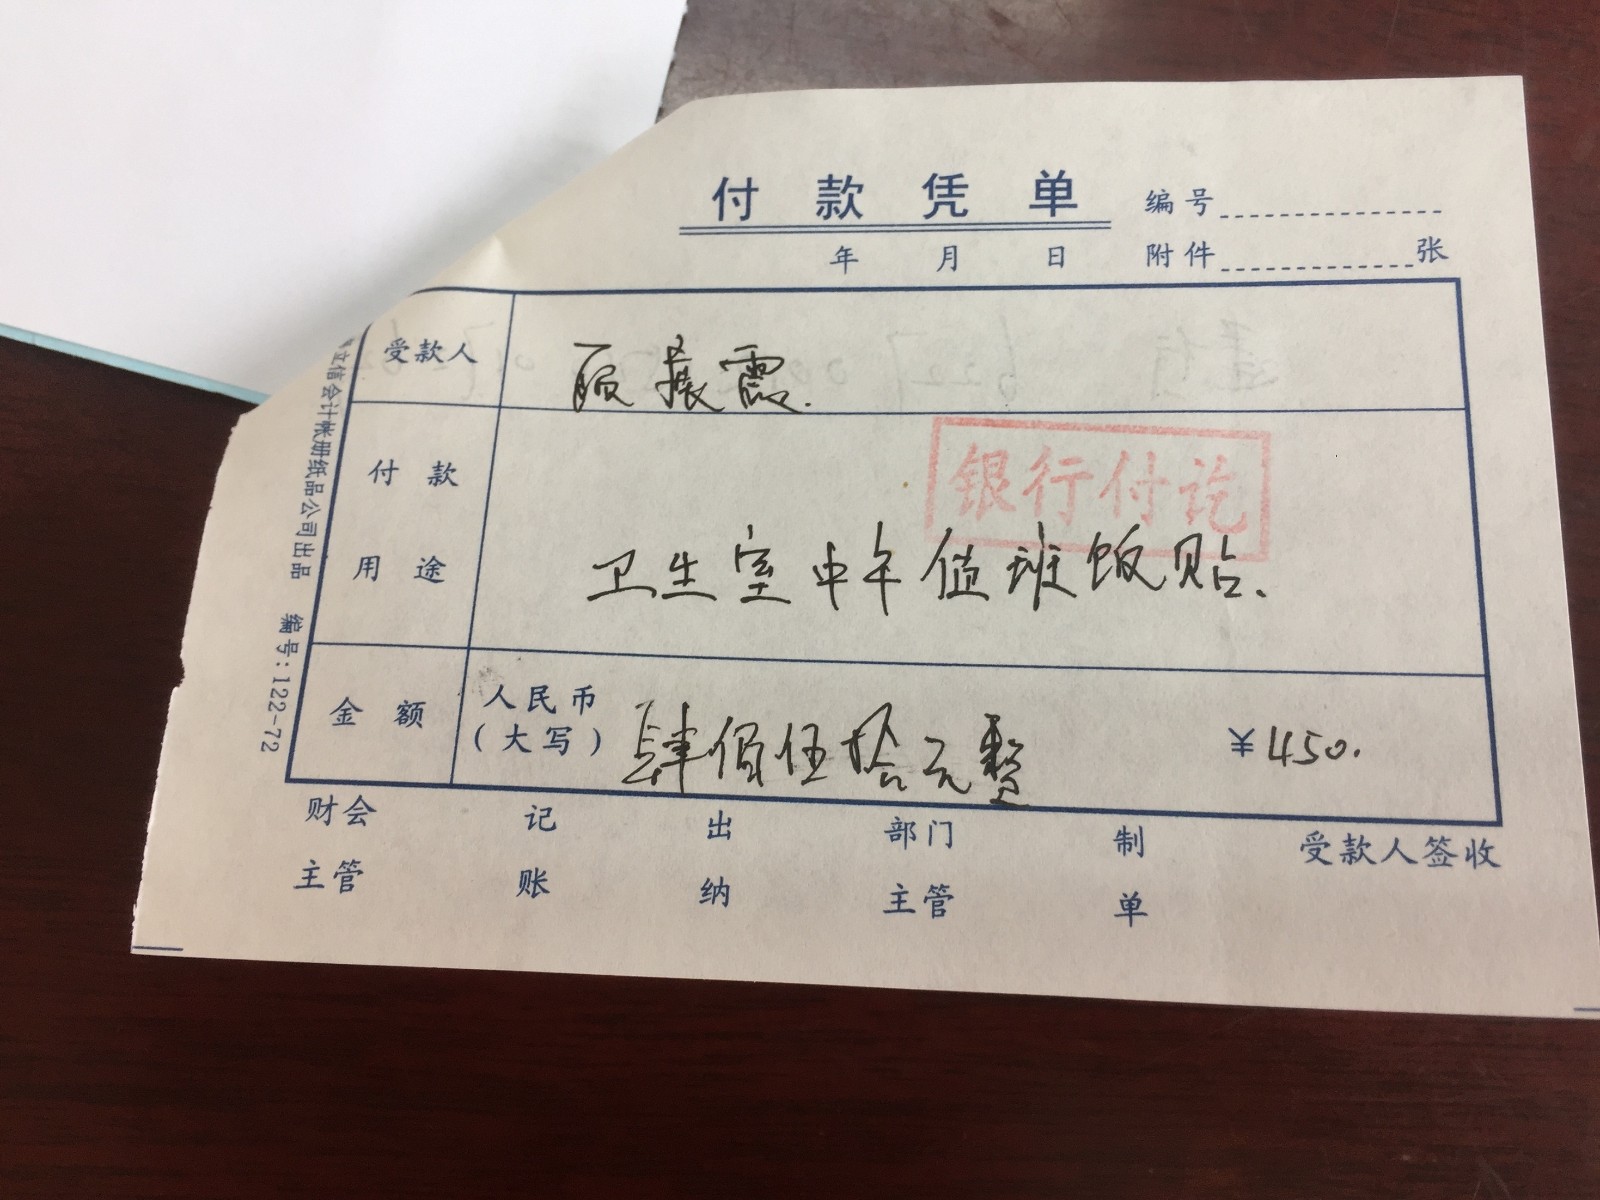 付款凭单
编号
年 月 日
附件 张
受款人
振霞.
付款用途
银行付讫
卫生室中午值班饭贴.
金额
人民币(大写)
肆佰伍拾元整
¥450.
财会主管
记账
出纳
部门主管
制单
受款人签收
立信会计帐册纸品公司出品 编号:122-72